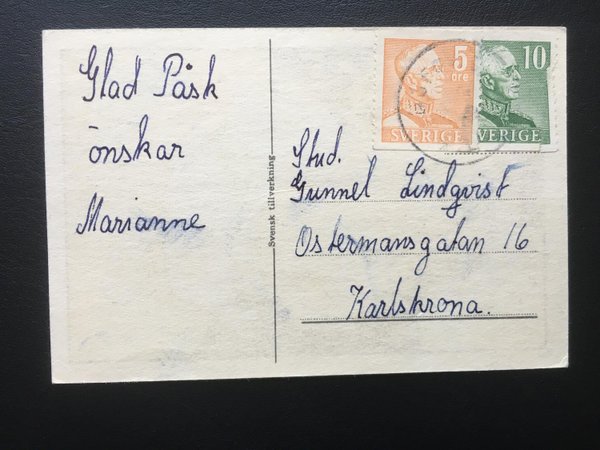 Glad Påsk
önskar
Marianne
Svensk tillverkning
5
öre
SVERIGE
10
SVERIGE
Stud.
Gunnel Lindqvist
Ostermansgatan 16
Karlskrona.